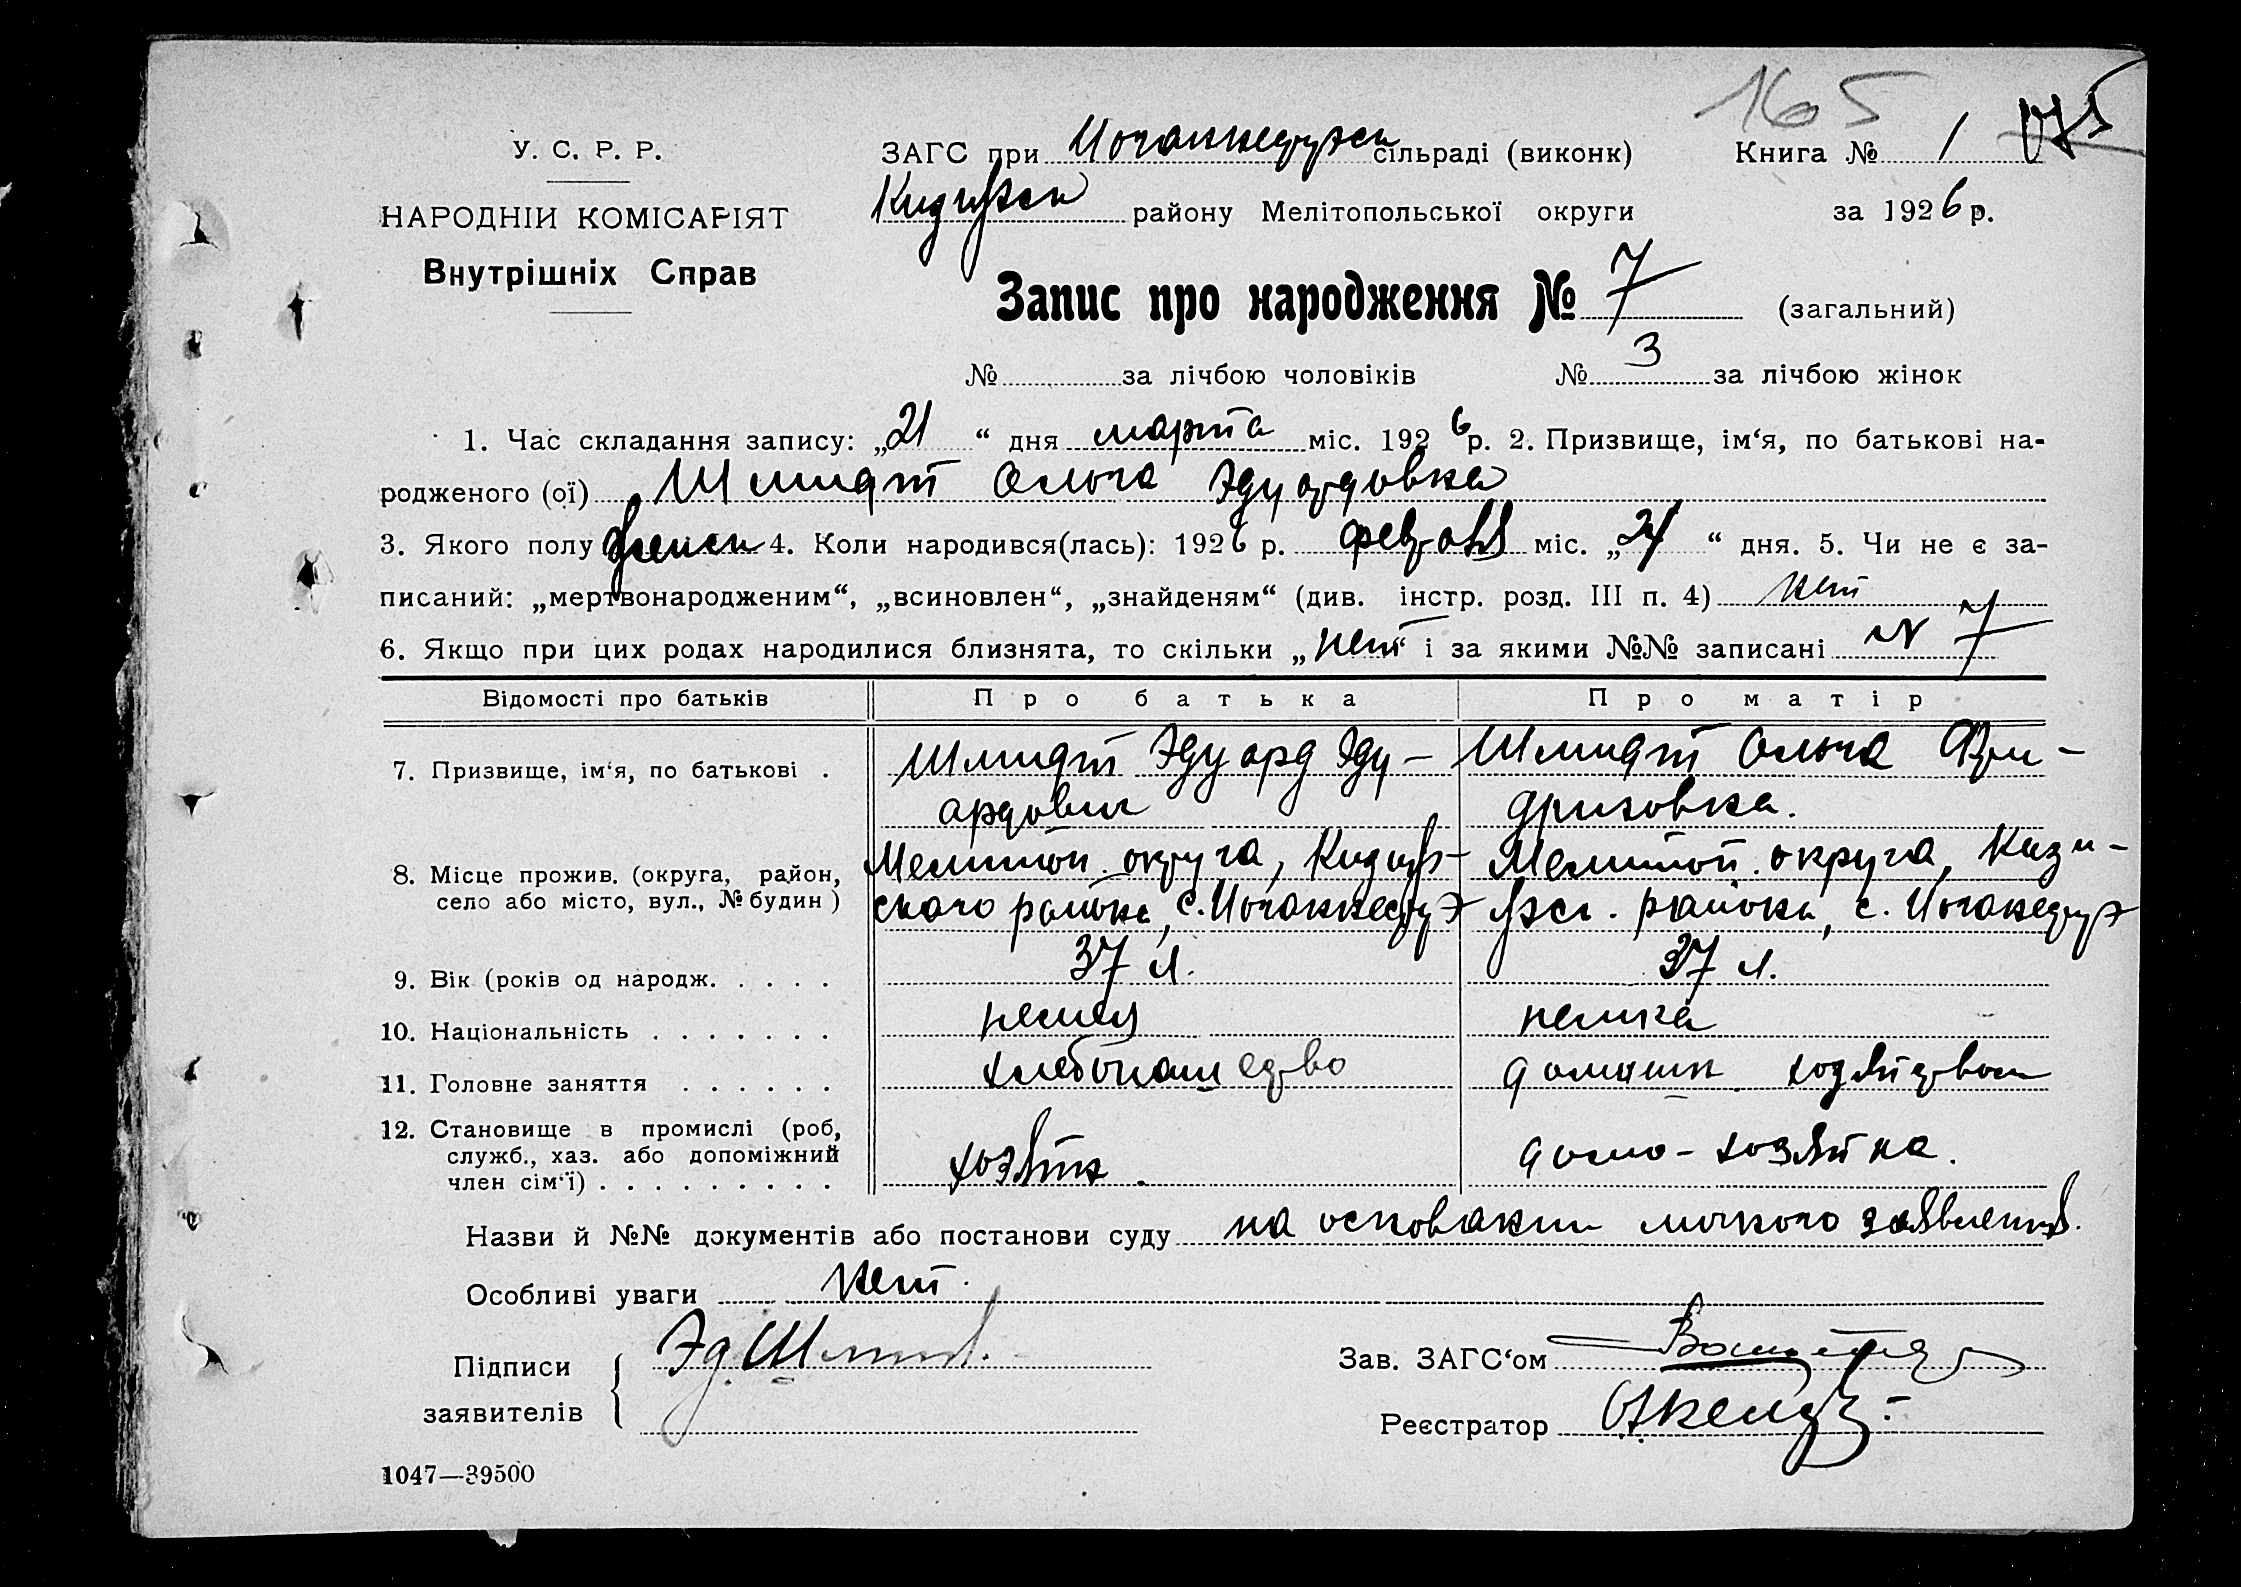 165
У. С. Р. Р.
ЗАГС при Иоганнесрузск сільраді (виконк) Книга № 1 175
НАРОДНІЙ КОМІСАРІЯТ
району Мелітопольської округи за 1926 р.
Внутрішніх Справ
Запис про народження № 7 (загальний)
№ за лічбою чоловіків № 3 за лічбою жінок
1. Час складання запису: „21“ дня марта міс. 1926 р. 2. Призвище, ім‘я, по батькові на-
родженого (ої) Шмидт Ольга Эдуардовна
3. Якого полу женск 4. Коли народився(лась): 1926 р. февраля міс. „21“ дня. 5. Чи не є за-
писаний: „мертвонародженим“, „всиновлен“, „знайденям“ (див. інстр. розд. III п. 4) нет
6. Якщо при цих родах народилися близнята, то скільки „нет“ і за якими №№ записані № 7
Відомості про батьків Про батька Про матір
7. Призвище, ім‘я, по батькові . Шмидт Эдуард Эду- Шмидт Ольга Фри-
ардович дриховна.
8. Місце прожив. (округа, район, Мелитоп. округа, Мелитоп. округа,
село або місто, вул., № будин) ского района, с. Иоганнесруэ района, с. Иоганесруэ
9. Вік (років од народж. . . . . 37 л. 37 л.
10. Національність . . . . . . . немец немка
11. Головне заняття . . . . . . хлебопашество домашн. хозяйством
12. Становище в промислі (роб,
служб., хаз. або допоміжний хозяин. домо-хозяйка.
член сім‘ї) . . . . . . . . .
Назви й №№ документів або постанови суду на основании личного заявления.
Особливі уваги нет.
Підписи Эд. Шмидт. Зав. ЗАГС‘ом
заявителів Реєстратор
1047—39500